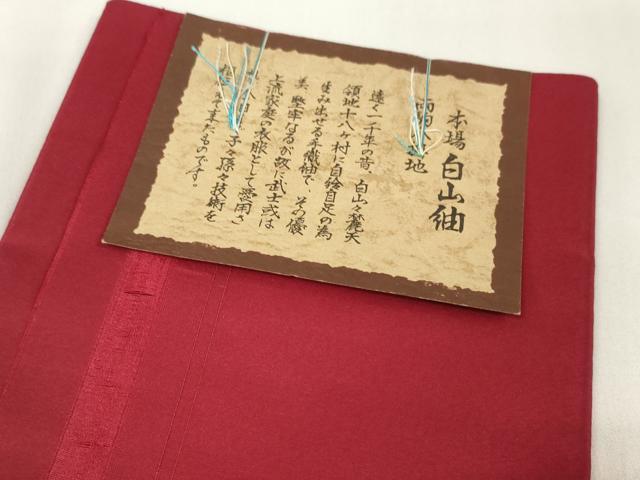 本場 白山紬
地
遠く一千年の昔、白山々麓天
領地十八ヶ村に自給自足の為
生み出せる手織紬で、その優
美、堅牢なるが故に武士或は
上流家庭の衣服として愛用さ
子々孫々技術を
来たものです。